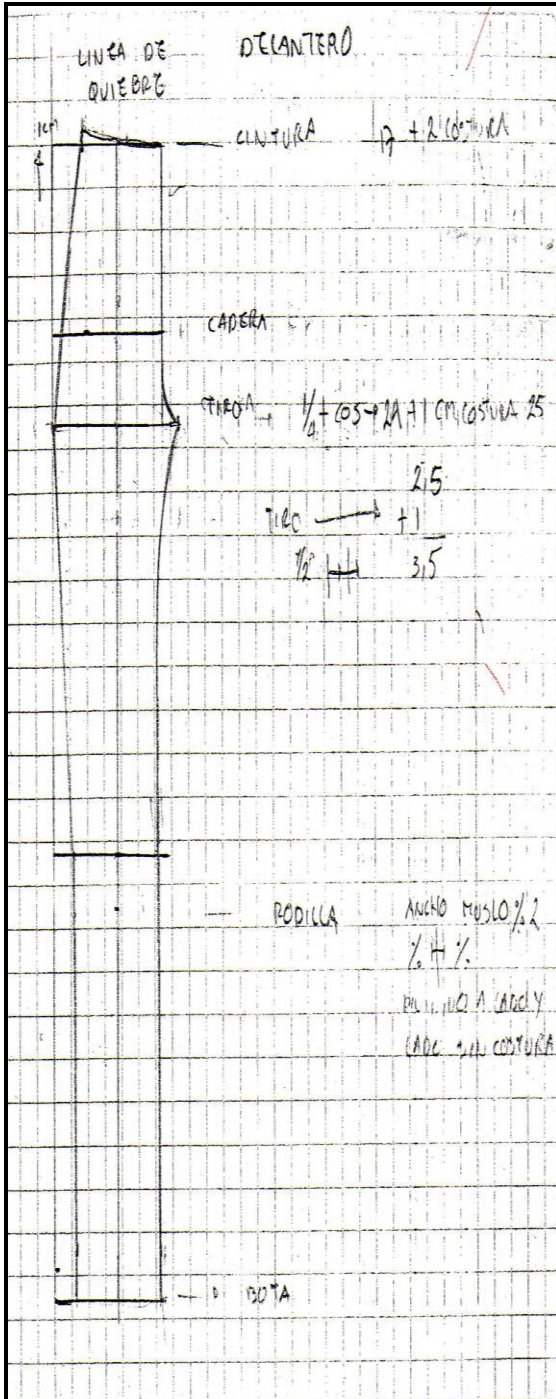 LINEA DE
QUIEBRE
DELANTERO
1cm
4
CINTURA 17 + 2 COSTURA
CADERA
TIRO 1/4 + COS → 2A + 1 CM COSTURA 25
2,5
TIRO → +1
1/2 3,5
RODILLA ANCHO MUSLO % 2
% + %
LADO Y
LADO SIN COSTURA
BOTA